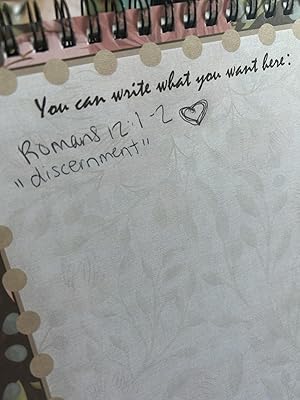 You can write what you want here:
Romans 12:1-2
"discernment"